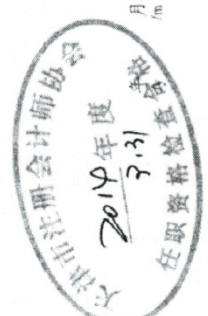 天津市注册会计师协会
2014年度
3.31
任职资格检查合格
月
/m